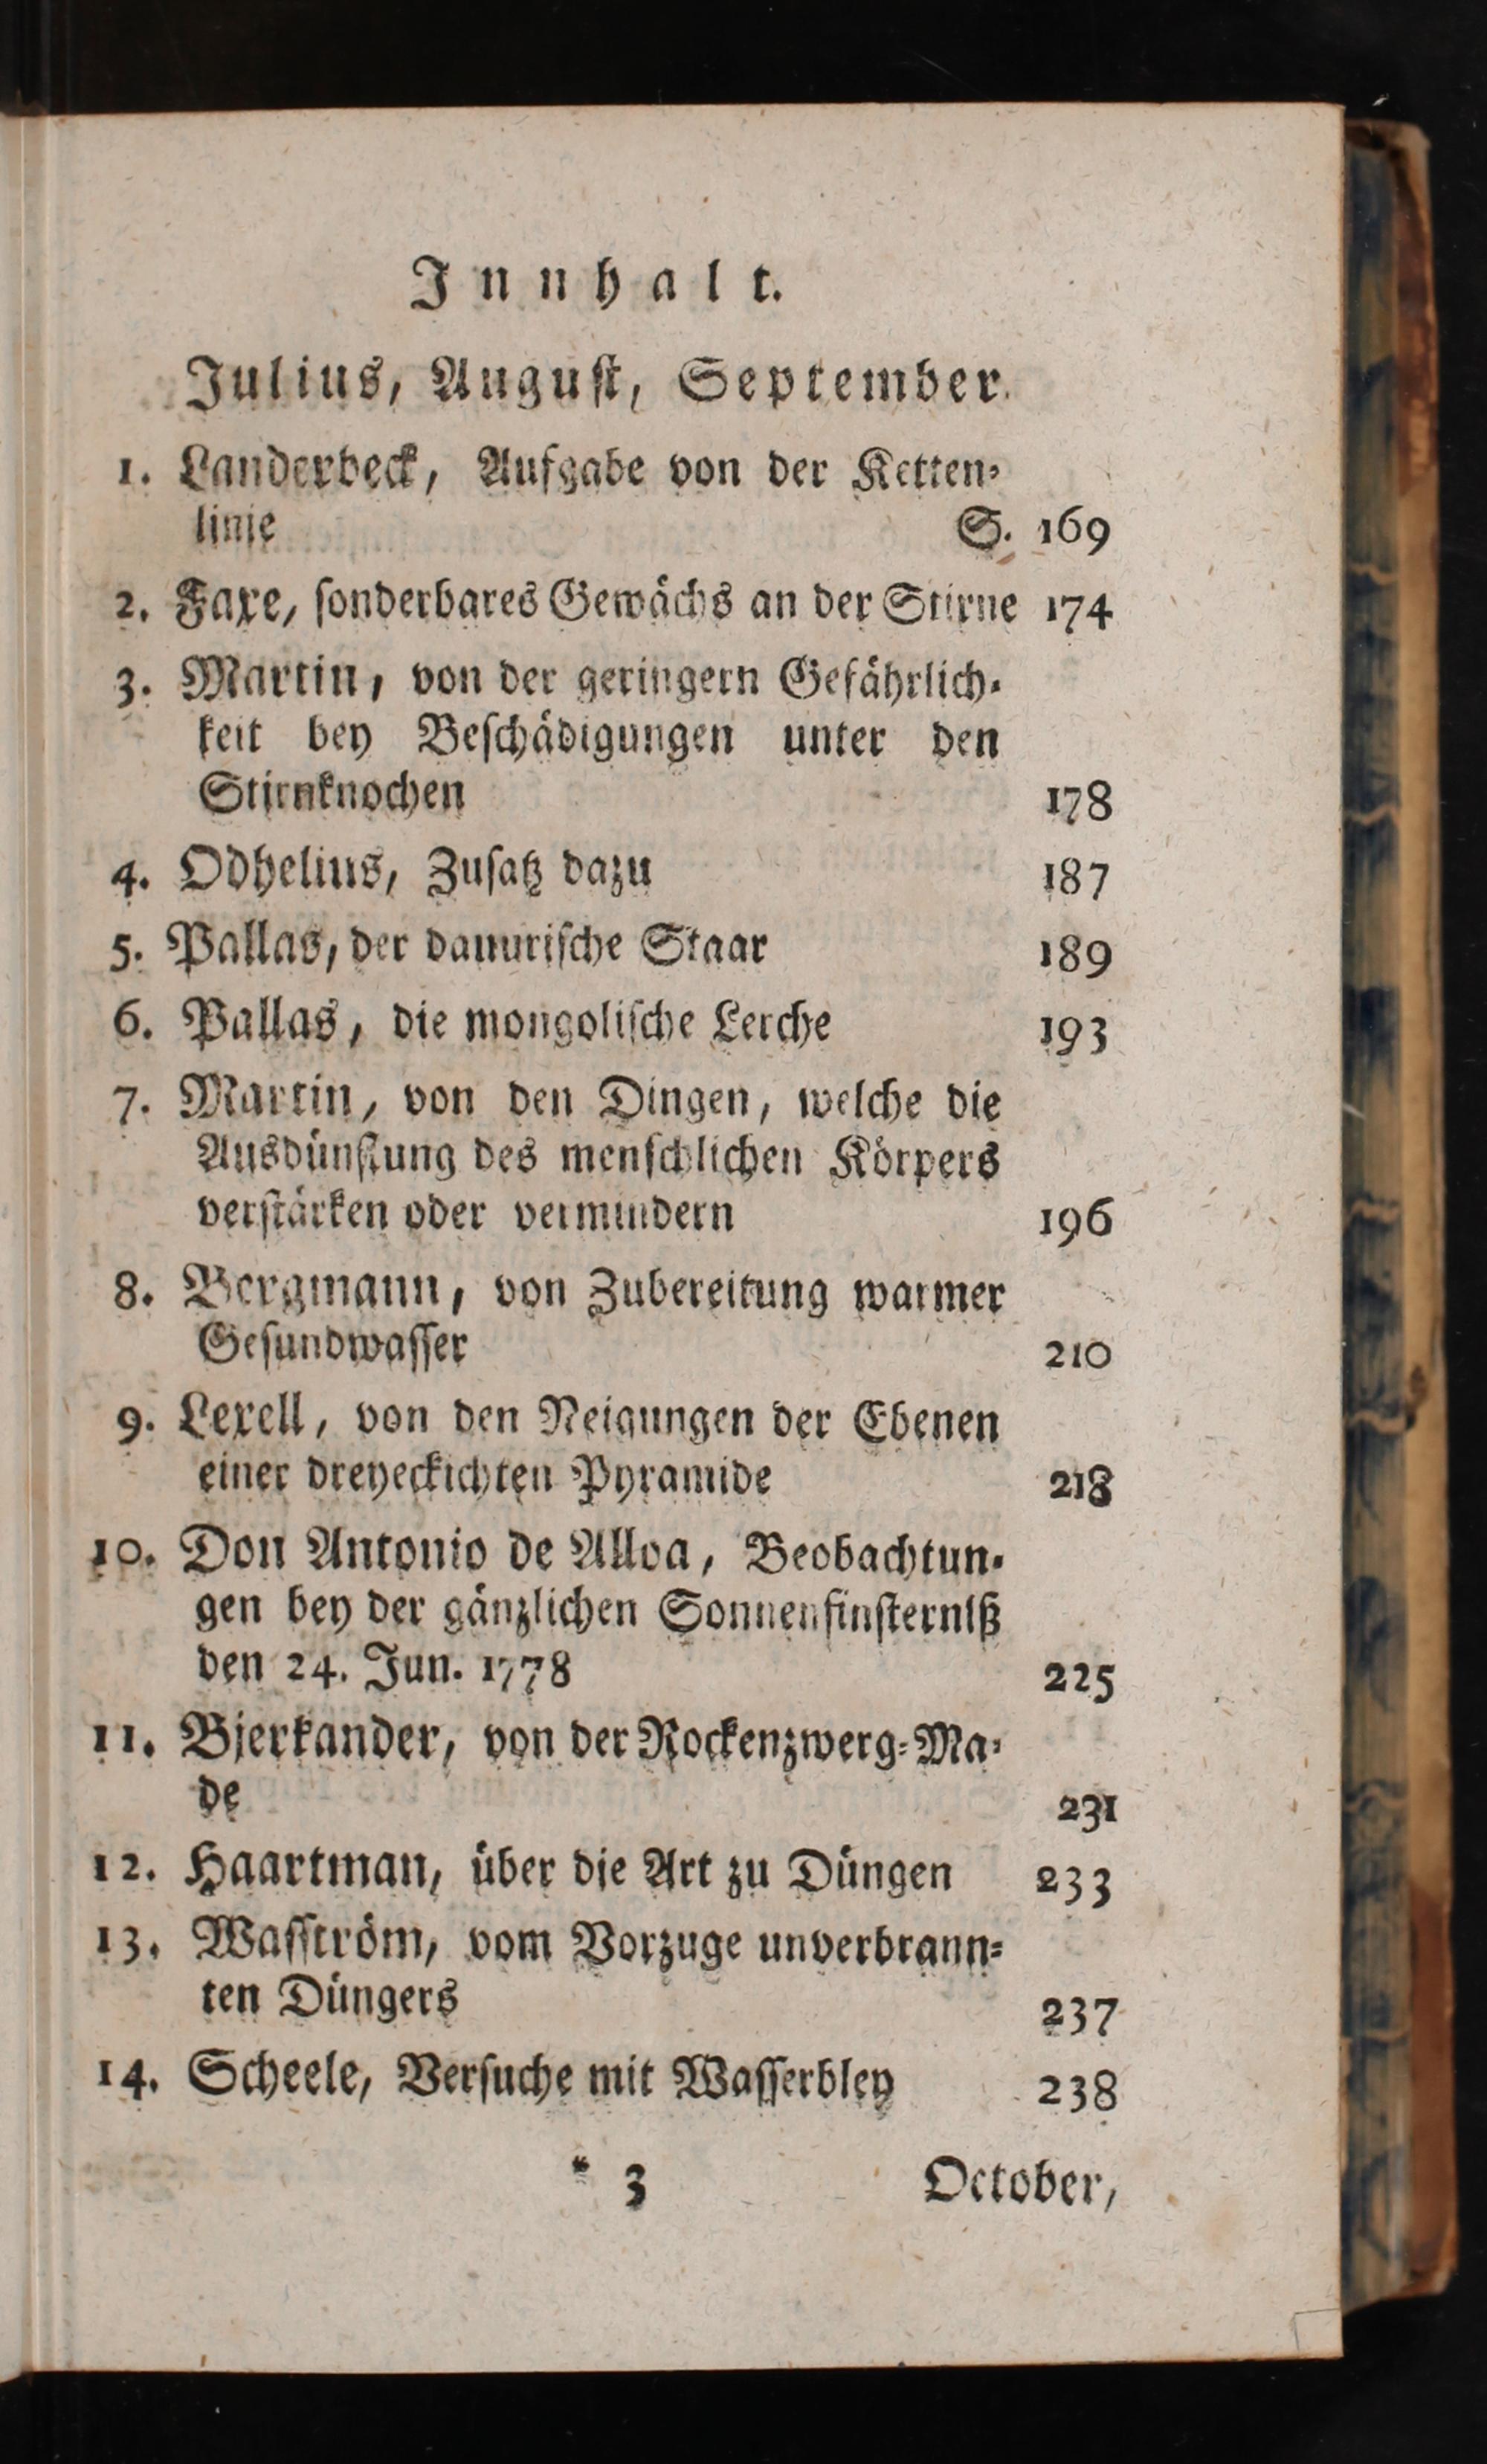 Innhalt.
Julius, August, September.
1. Landerbeck, Aufgabe von der Ketten-
linie S. 169
2. Faxe, sonderbares Gewächs an der Stirne 174
3. Martin, von der geringern Gefährlich-
keit bey Beschädigungen unter den
Stirnknochen 178
4. Odhelius, Zusatz dazu 187
5. Pallas, der dauurische Staar 189
6. Pallas, die mongolische Lerche 193
7. Martin, von den Dingen, welche die
Ausdünstung des menschlichen Körpers
verstärken oder vermindern 196
8. Bergmann, von Zubereitung warmer
Gesundwasser 210
9. Lexell, von den Neigungen der Ebenen
einer dreyeckichten Pyramide 218
10. Don Antonio de Alloa, Beobachtun-
gen bey der gänzlichen Sonnenfinsterniß
den 24. Jun. 1778 225
11. Bjerkander, von der Rockenzwerg-Ma-
de 231
12. Haartman, über die Art zu Düngen 233
13. Wasström, vom Vorzuge unverbrann-
ten Düngers 237
14. Scheele, Versuche mit Wasserbley 238
* 3 October,